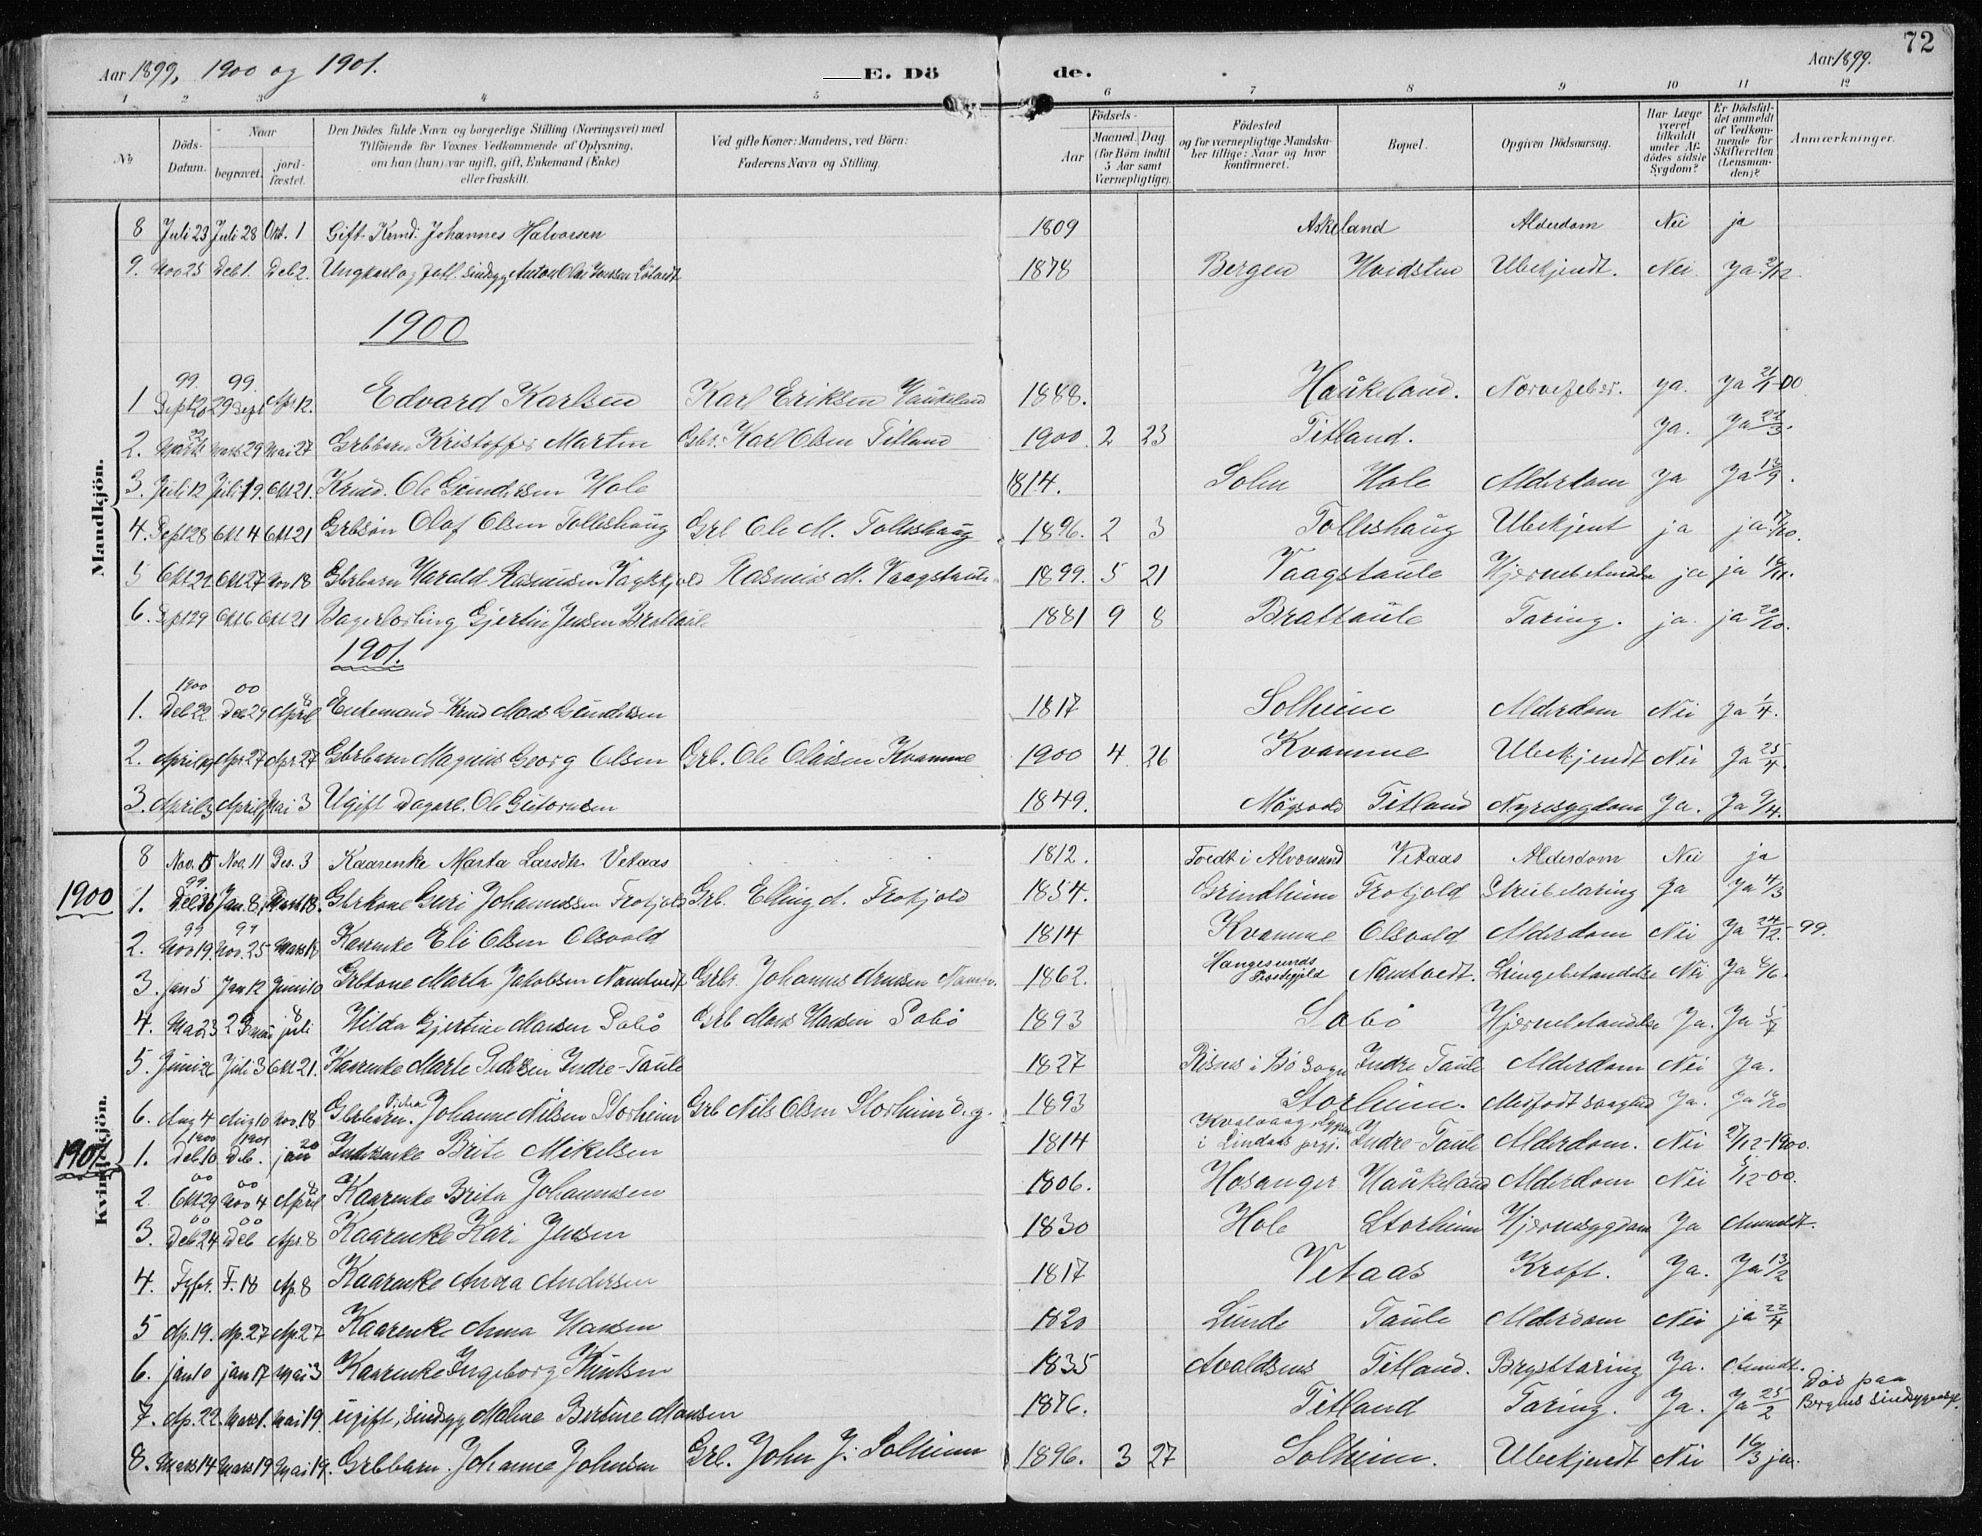 72
Aar 1899, 1900 og 1901. E. Dö de. Aar 1899.
1 2 3 4 5 6 7 8 9 10 11 12
No Döds-Datum. Naar begravet. jord-fæstet. Den Dödes fulde Navn og borgerlige Stilling (Næringsvei) med Tilföiende for Voxnes Vedkommende af Oplysning, om han (hun) var ugift, gift, Enkemand (Enke) eller fraskilt. Ved gifte Koner: Mandens, ved Börn: Faderens Navn og Stilling. Födsels- Aar Maaned. Dag (for Börn indtil 5 Aar samt Værnepligtige). Födested og for værnepligtige Mandska-ber tillige: Naar og hvor konfirmeret. Bopæl. Opgiven Dödsaarsag. Har Læge været tilkaldt under Af-dödes sidste Sygdom? Er Dödsfal-det anmeldt af Vedkom-mende for Skifteretten (Lensman-den)? Anmærkninger.
Mandkjön.
8 Juli 23 Juli 28 Okt. 1 Gift Krmd. Johannes Halvorsen 1809 Askeland Alderdom Nei ja
9. Nov 25 Deb 1. Deb 2. Ungkarl og Anton Olai Jonssen 1878 Bergen Hvidsten Ubekjendt. Nei Ja 2/12
1900
1 99. Sept 20 99. 29 Sept Apr 12. Edvard Karlsen Karl Eriksen Haukeland 1888. Haukeland. Nervefeber. ja. Ja -00
2. Mars 29 Mai 27 Grbbarn Kristoffer Martin Gbr. Karl Olsen Titland 1900 2 23 Titland. Ja. Ja 22/3.
3. Juli 12 Juli 19 Okt 21. Krmd. Ole Gundersen Hole 1814. Solem Hole Alderdom Ja Ja
4. Sept 28 Okt 4 Okt 21 Grbsön Olaf Olsen Tolleshaug Grb Ole M. Tolleshaug 1896. 2 3 Tolleshaug Ubekjent ja ja 17/10.
5 Okt 22 Okt 27 Nov 18 Gbrbarn Harald Rasmussen Rasmus M. Vaagstaule 1899. 5 21 Vaagstaule Hjernebetændelse ja ja
6. Sept 29 Okt 6 Okt 21 Bagerlærling Gjertin Jensen Brattaule 1881 9 8 Brattaule Tæring. ja. ja 20/10.
1901.
1. 1900 Deb 22 00 Deb 29 April 8 Enkemand Krmd Mons Gundersen 1817 Solheim Alderdom Nei Ja 1/4.
2. April 19 Apr 27 Apr 27 Gbrbarn Magnus Georg Olsen Grb. Ole Olaisen Kvamme 1900 4 26 Kvamme Ubekjendt Nei Ja 25/4.
3. April 3 April Mai 3 Ugift Dagarb. Ole Gutormsen 1849. Titland Nyresygdom Ja. Ja 9/4.
Kvindekjön.
8 Nov. 5 Nov. 11 Des. 3 Kaarenke Marta Larsdtr. Vetaas 1812. Tvedt i Alversund Vetaas Alderdom Nei ja
1900
1. 99 Deb 30 Jan. 8 Mars 18. Gbrkone Guri Johannessen Frotjold Grb. Elling A. Frotjold 1854. Grindheim Frotjold Strubetæring Ja Ja 4/3
2. 99 Nov 19 99 Nov. 25 Mars 18 Kaarenke Eli Olsen Olsvold 1814 Kvamme Olsvold Alderdom Nei Ja 24/12-99.
3. Jan 5 Jan 12 Juni 10 Grbkone Marta Jakobsen Namtvedt Grbr. Johannes Arnesen 1862. Haugesunds Præstegjeld Namtvedt. Lungebetændelse Nei Ja
4. Mai 23 2 juli Hilda Gjertine Monsen Sabö Grb Mons Hansen Sabö 1893 Sabö Hjernebetændelse Ja. Ja 5/7
5. Juni 26 Juli 3 Okt 21. Kaarenke Marte Pedersen Indre-Taule 1827 Risnes i Bö Sogn Indre Taule Alderdom Nei Ja.
6. Aug 4 Aug 10 Nov. 18 Gbrbarn. Johanne Nilsen Storheim Grb Nils Olsen Storheim 1893 Storheim. Ja. Ja
1901.
1. 1900 Deb 10 1901 Deb. jan 20 Brite Mikelsen 1814 i Lindaas prgj. Indre-Taule Alderdom. Nei 27/12-1900.
2 00 Okt 29 00 Nov 4 April 8 Kaarenke Brita Johannesen 1806. Hosanger Haukeland Alderdom Nei
3. 00 Deb 24 00 Deb Apr. 8 Kaarenke Kari Jensen 1830 Hole Storheim Hjernesygdom Ja Anmeldt.
4 F. 18 Ap. 8 Kaarenke Anna Andersen 1817 Vetaas Kræft. Ja. Ja 13/2
5 Ap. 19. Ap. 27 Ap. 27 Kaarenke Anna Hansen 1820 Lunde Taule Alderdom Nei ja 22/4
6. jan 10 jan 17 Mai 3 Kaarenke Ingeborg Knutsen 1835 Avaldsnes Titland. Brysttæring Ja. Anmdt.
7. Ap. 22. Mars 1. Mai 19. ugift, sindsyg Malene Bertine Monsen 1876. Titland Tæring. Ja. Ja 25/2 Död paa Bergens sindsygeasyl.
8. Mars 14 Mars 19 Mai 19. Grbbarn. Johanne Johnsen Grb. John J. Solheim 1896. 3 27 Solheim. Ubekjendt Nei 16/3 ja.